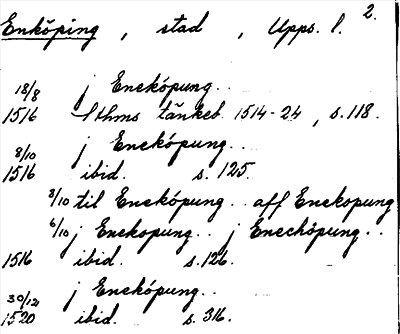 Enköping, stad, Upps. l. 2.
18/8 j Enekópung..
1516 Sthms tänkeb. 1514-24, s. 118.
8/10 j Enekópung..
1516 ibid. s. 125.
8/10 til Enekópung.. aff Enekopung
6/10 j Enekopung.. j Enechópung..
1516 ibid. s. 126.
30/12 j Enekópung..
1520 ibid. s. 316.